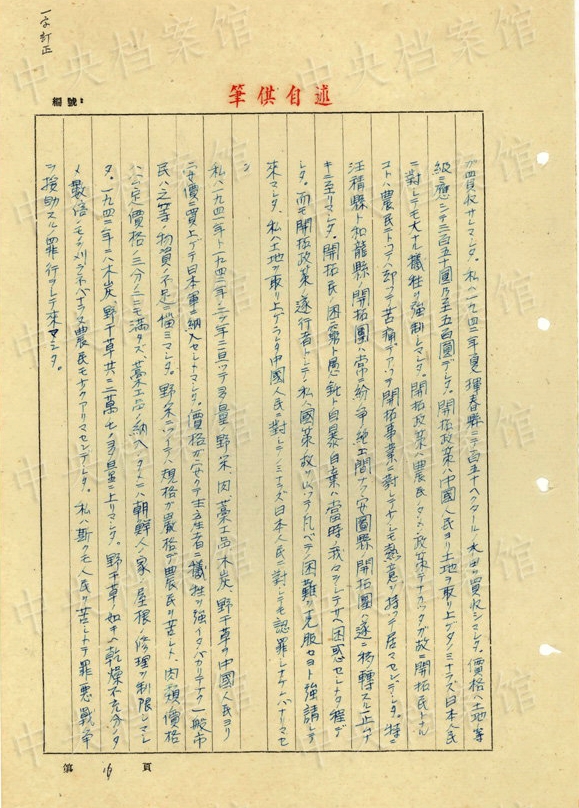 一字訂正
編號：
筆供自述
ガ買収サレマシタ。私ハ一九四二年夏琿春縣ニテ百五十ヘクタールノ水田ヲ買収シマシタ。價格ハ土地等
級ニ應ジテ三百五十圓乃至五百圓デシタ。開拓政策ハ中國人民ヨリ土地ヲ取リ上ゲタノミナラズ日本人民
ニ對シテモ大ナル犠牲ヲ強制シマシタ。開拓政策ハ農民ノタメノ政策デナカッタガ故ニ開拓民トナル
コトハ農民ニトッテハ却ッテ苦痛デアッテ開拓事業ニ對シテ少シモ熱意ヲ持ッテ居マセンデシタ。特ニ
汪精縣ト和龍縣ノ開拓團ハ常ニ紛争絶エ間ナク安圖縣ノ開拓團ハ遂ニ移轉スルノ止ムナ
キニ至リマシタ。開拓民ノ困窮ト愚鈍ト自暴自棄ハ當時我々ヲシテサヘ困惑セシメタ程デ
シタ。而モ開拓政策ノ遂行者トシテノ私ハ國策ノ故ヲ以ッテ凡ベテノ困難ヲ克服セヨト強請シテ
來マシタ。私ハ土地ヲ取リ上ゲラレタ中國人民ニ對シテノミナラズ日本人民ニ對シテモ認罪シナケレバナリマセ
ン
私ハ一九四一年ト一九四二年ノ二ヶ年ニ亘ッテ多量ノ野菜、肉、藁工品、木炭、野干草ヲ中國人民ヨリ
安價ニ買上ゲテ日本軍ニ納入セシメマシタ。價格ガ安クテ生産者ニ犠牲ヲ強イタバカリデナク一般市
民ハ之等物資ノ不足ニ悩ミマシタ。野菜ニツイテハ規格ガ嚴格デ農民ヲ苦シメ、肉類ノ價格
ハ公定價格ノ三分ノ一ニモ満タズ、藁工品ノ納入ノタメニハ朝鮮人家ノ屋根ノ修理ヲ制限シマシ
タ。一九四二年ニハ木炭、野干草共ニ二萬屯ノ多量ニ上リマシタ。野干草ノ如キハ乾燥不充分ノタ
メ數倍ノモノヲ刈ラネバナラヌ農民モ少クアリマセンデシタ。私ハ斯クモ人民ヲ苦シメテ罪悪戰争
ヲ援助スルノ罪行ヲシテ來マシタ。
第 16 頁